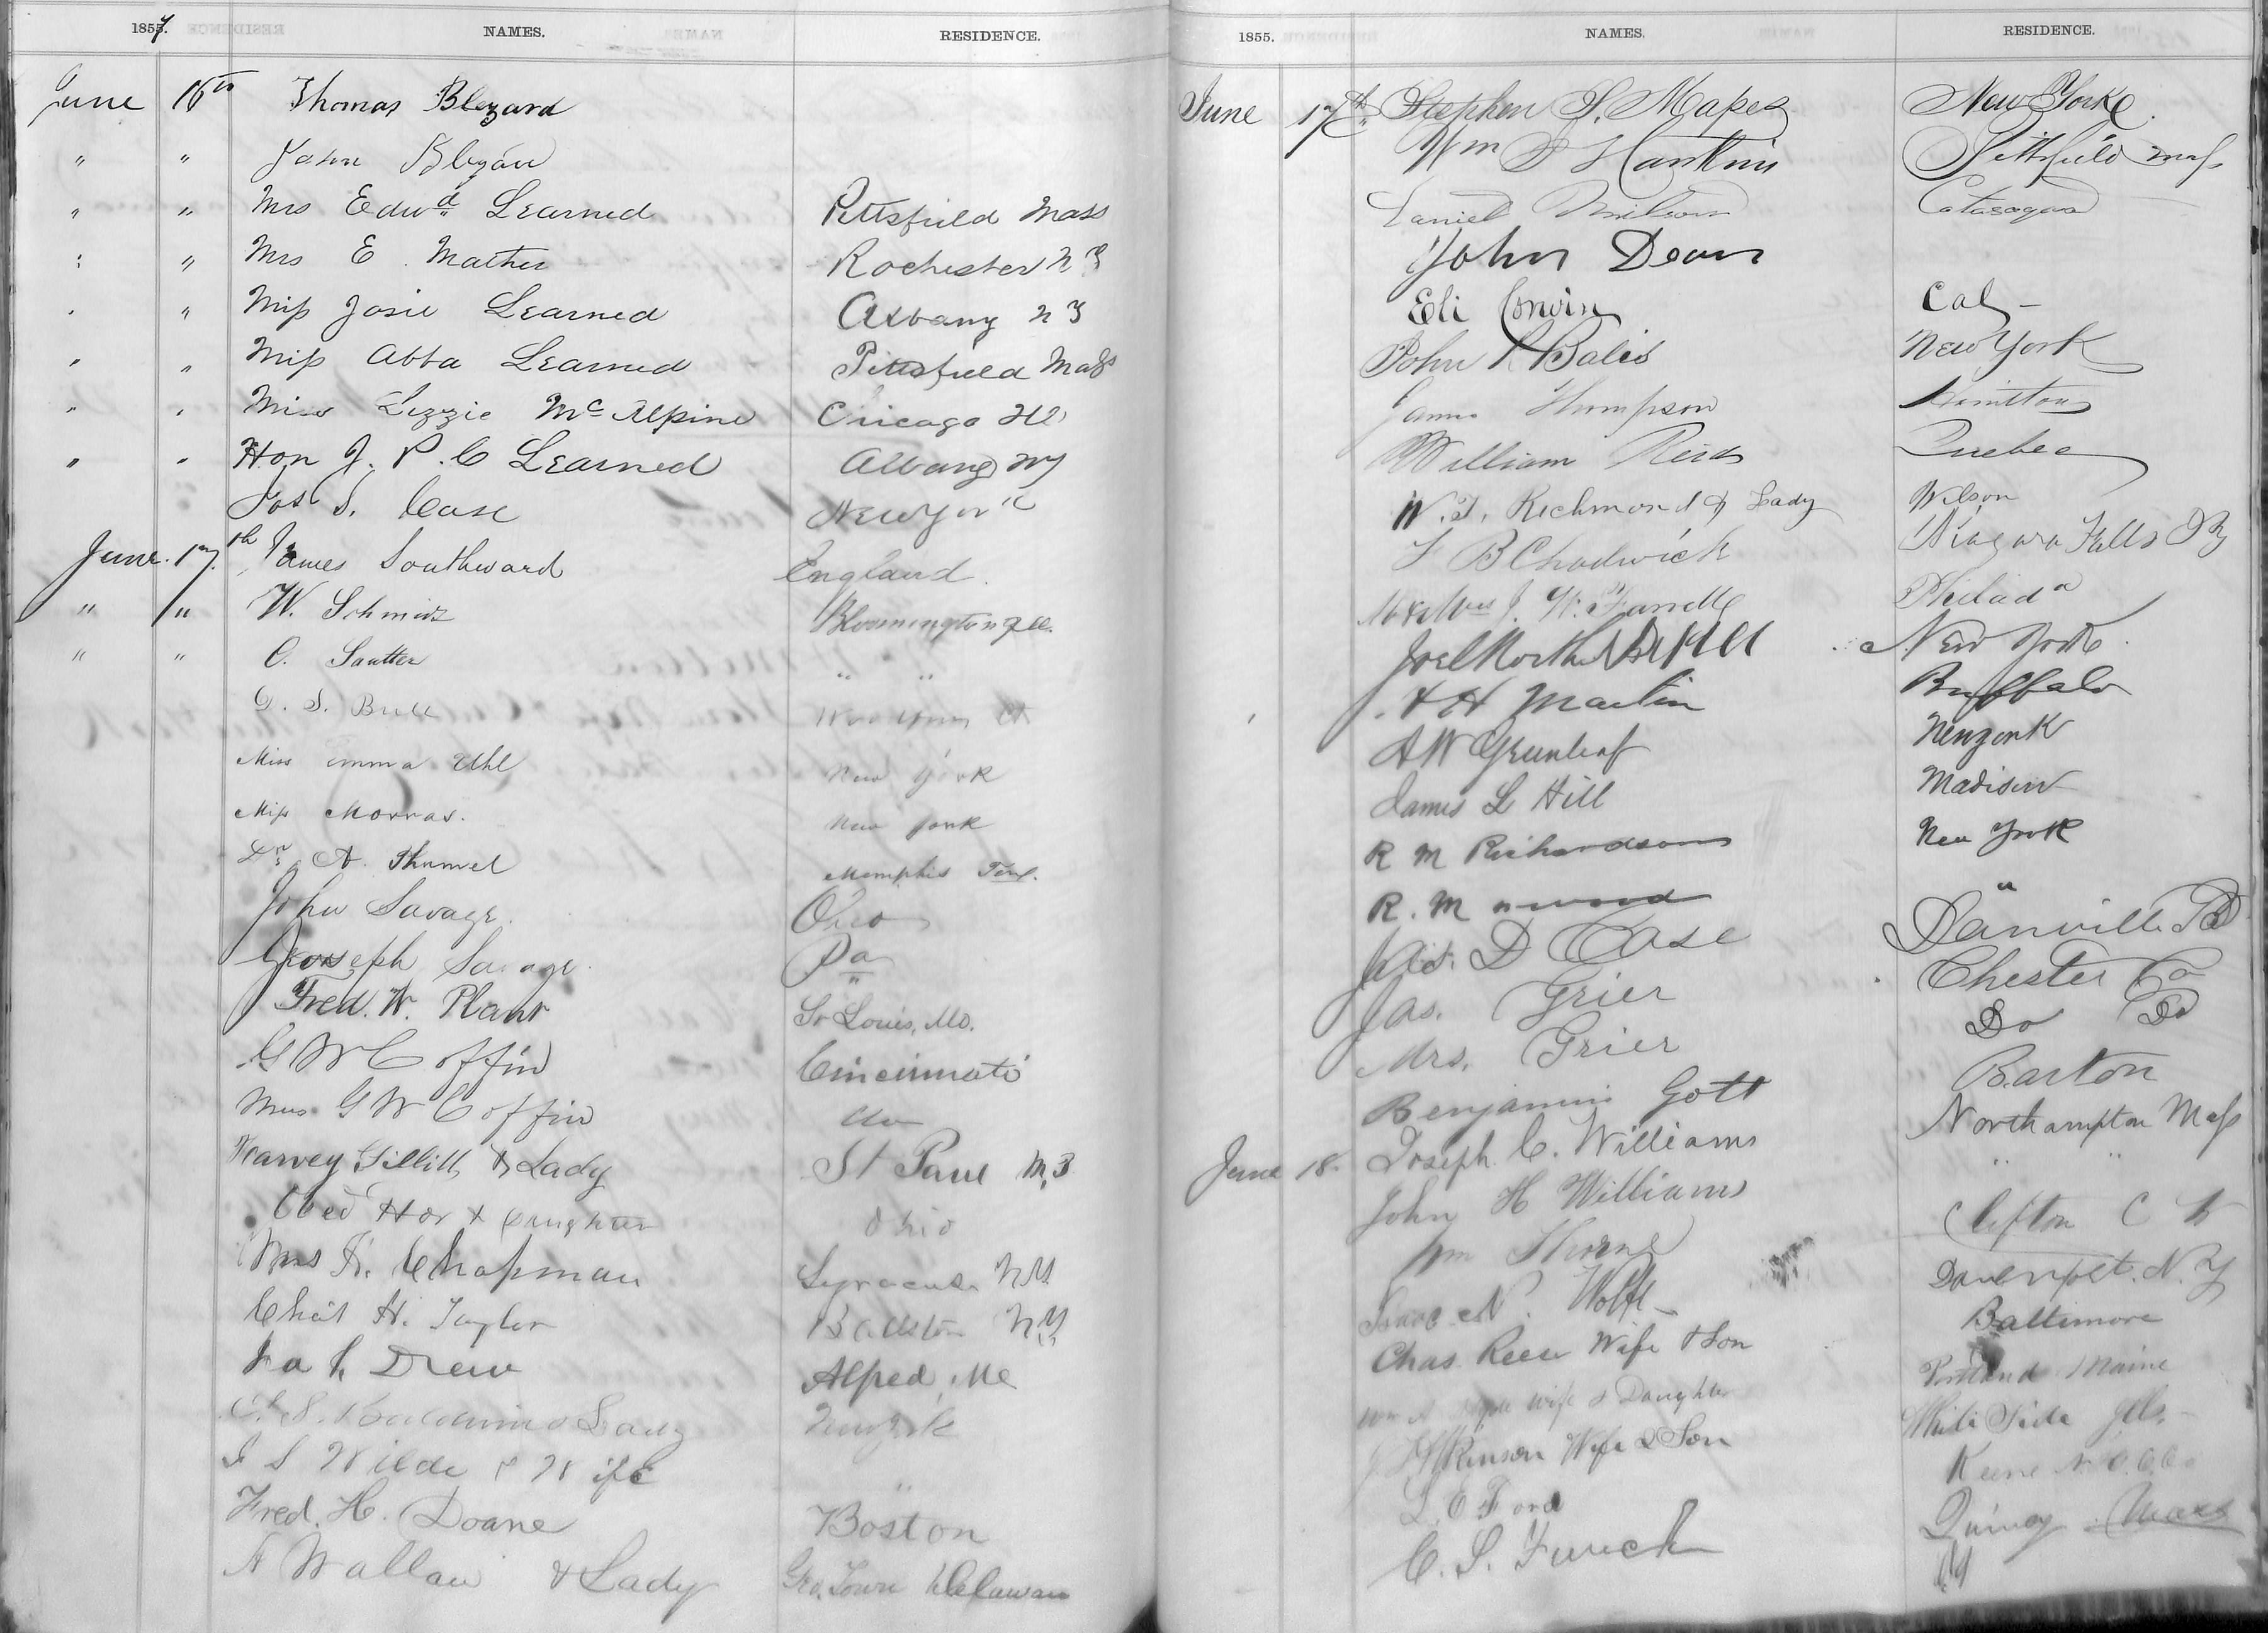 1857. NAMES. RESIDENCE.
June 16th Thomas Blezard
" " John Blezard
" " Mrs Edwd Learned Pittsfield Mass
" " Mrs E. Mather Rochester N Y
" " Miss Josie Learned Albany N Y
" " Miss Abba Learned Pittsfield Mass
" " Miss Lizzie McAlpine Chicago Ill
" " Hon J. P. C Learned Albany NY
Jos S. Case New York
June 17th James Southward England.
" " W. Schmidt Bloomington Ill.
" " C. Sautter " "
G. S. Bull
Miss Emma Uhl New York
Miss Morras. New York
Dr. A. Thumel Memphis Ten.
John Savage. Ohio
Joseph Savage. Pa
Fred. W. Plant St Louis, Mo.
G W Coffin Cincinnati
Mrs G W Coffin do
Harvey Gillitt & Lady St Paul M.T
Obed Hor & Daughter Ohio
Mrs H. Chapman Syracuse N.Y.
Chas H. Taylor Ballston N.Y.
Ira L Drew Alfred, Me
C. S. Baldwin & Lady New York
J S Wilde & Wife "
Fred. H. Doane Boston
A Wallace & Lady Geo. Town Delaware
1855. NAMES. RESIDENCE.
June 17th Stephen S. Mapes New York.
Wm S Hankins Pittsfield Mass
Daniel Milson Catasaqua
John Dean
Eli Corwin Cal -
John P Bales New York
James Thompson Hamilton
William Reid Quebec
W. T. Richmond & Lady Wilson
F B Chadwick Niagara Falls NY
Mr & Mrs J. W. Farrell Philada
Joel North New York.
H Martin Buffalo
A W Greenleaf New York
James L Hill Madison
R M Richardson New York
R. M "
Jas. D Case Danville Pa
Jas. Grier Chester Co
Mrs. Grier Do Do
Benjamin Gott Barton
June 18. Joseph C. Williams Northampton Mass
John H Williams " "
Wm Thorne Clifton C W
Isaac N. Wolfe Davenport. N. Y
Chas. Reese Wife & Son Baltimore
Wm A Hyde Wife & Daughter Portland Maine
J Atkinson Wife & Son White Side Ills.
L. E Ford Keene N.
C. S. French Quincy Mass